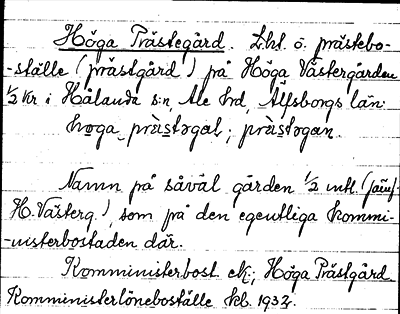 Höga Prästegård. Lht. o. prästebo-
-ställe (prästgård) på Höga Västergården
1/2 kr i Hålanda s:n, Ale hrd, Älfsborgs län.
hɷga prɛ̀stəgaḷ; prɛ̀stəgan.
Namn på såväl gården 1/2 mtl. (jämf.
H. Västerg.), som på den egentliga kommi-
-nisterbostaden där.
Komministerbost. ek.; Höga Prästgård
Komministerlöneboställe kb. 1932.